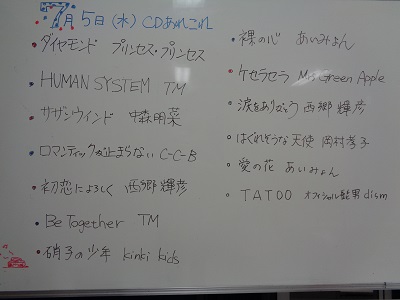 7月5日(水) CDあれこれ
・ダイヤモンド プリンセス・プリンセス
・HUMAN SYSTEM TM
・サザンウインド 中森明菜
・ロマンティックが止まらない C-C-B
・初恋によろしく 西郷輝彦
・Be Together TM
・硝子の少年 kinki kids
・裸の心 あいみょん
・ケセラセラ Mrs Green Apple
・涙をありがとう 西郷輝彦
・はぐれそうな天使 岡村孝子
・愛の花 あいみょん
・TATOO オフィシャル髭男dism